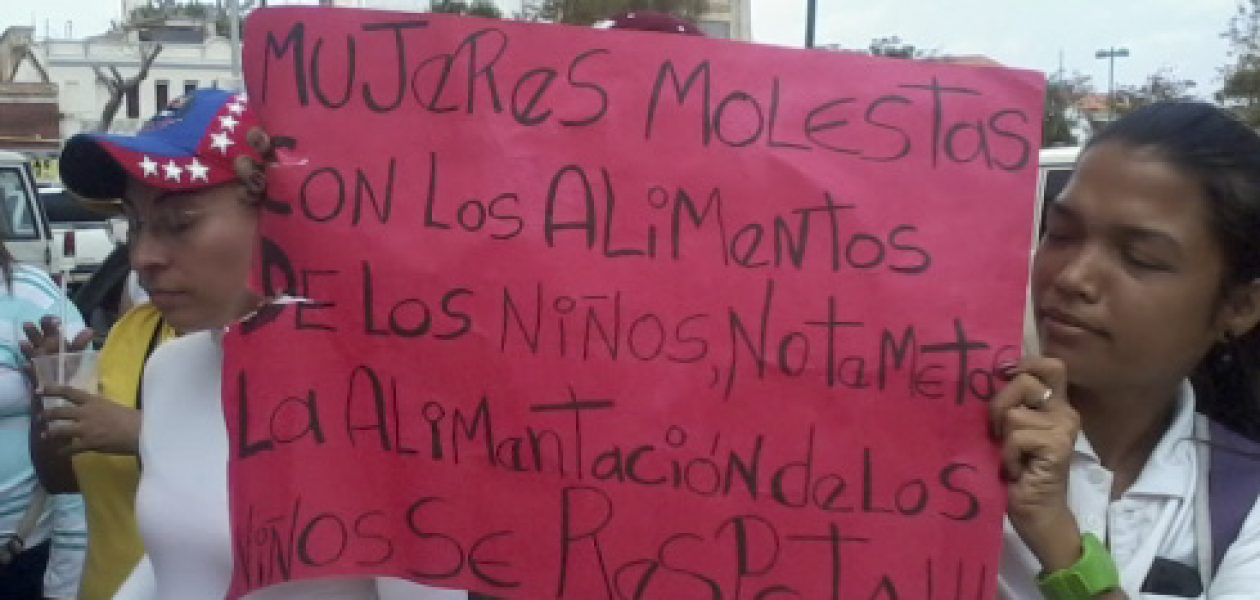 MUJeReS MOLESTas
CON LOS ALiMeNtOS
DE LOS NiÑOS, No ta Meta
La ALiMantación de LOS
NiÑOS Se ResPeta!!!